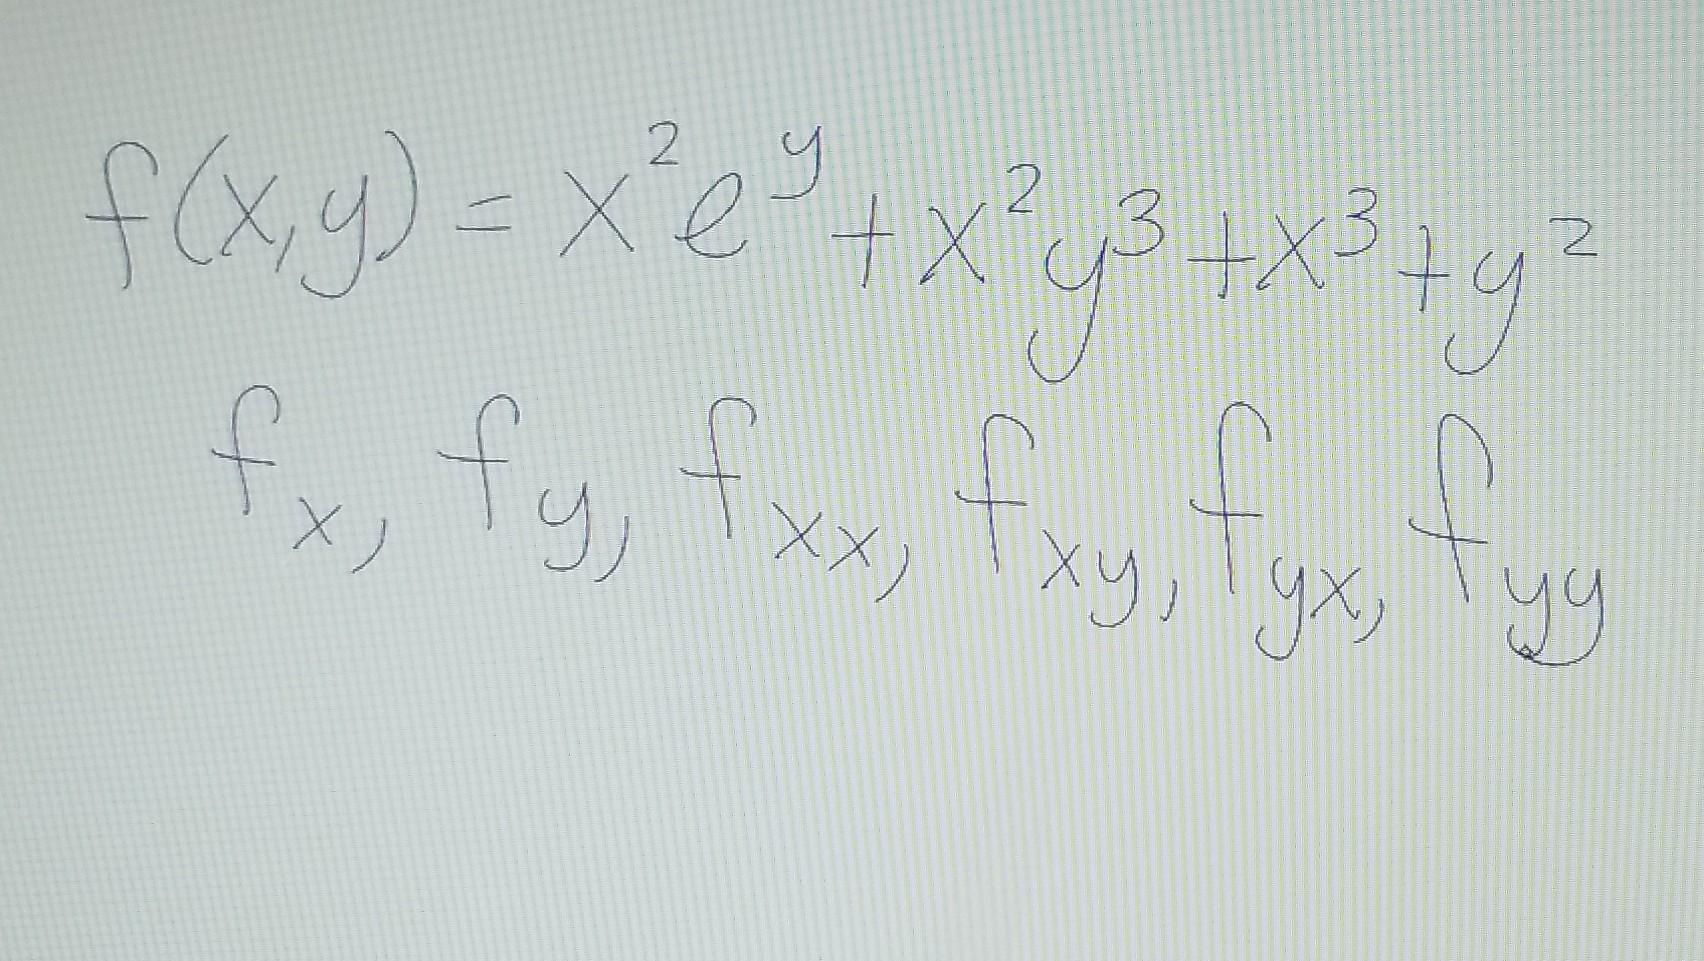 f(x,y) = x²e^y + x²y³ + x³ + y²
f_x, f_y, f_xx, f_xy, f_yx, f_yy